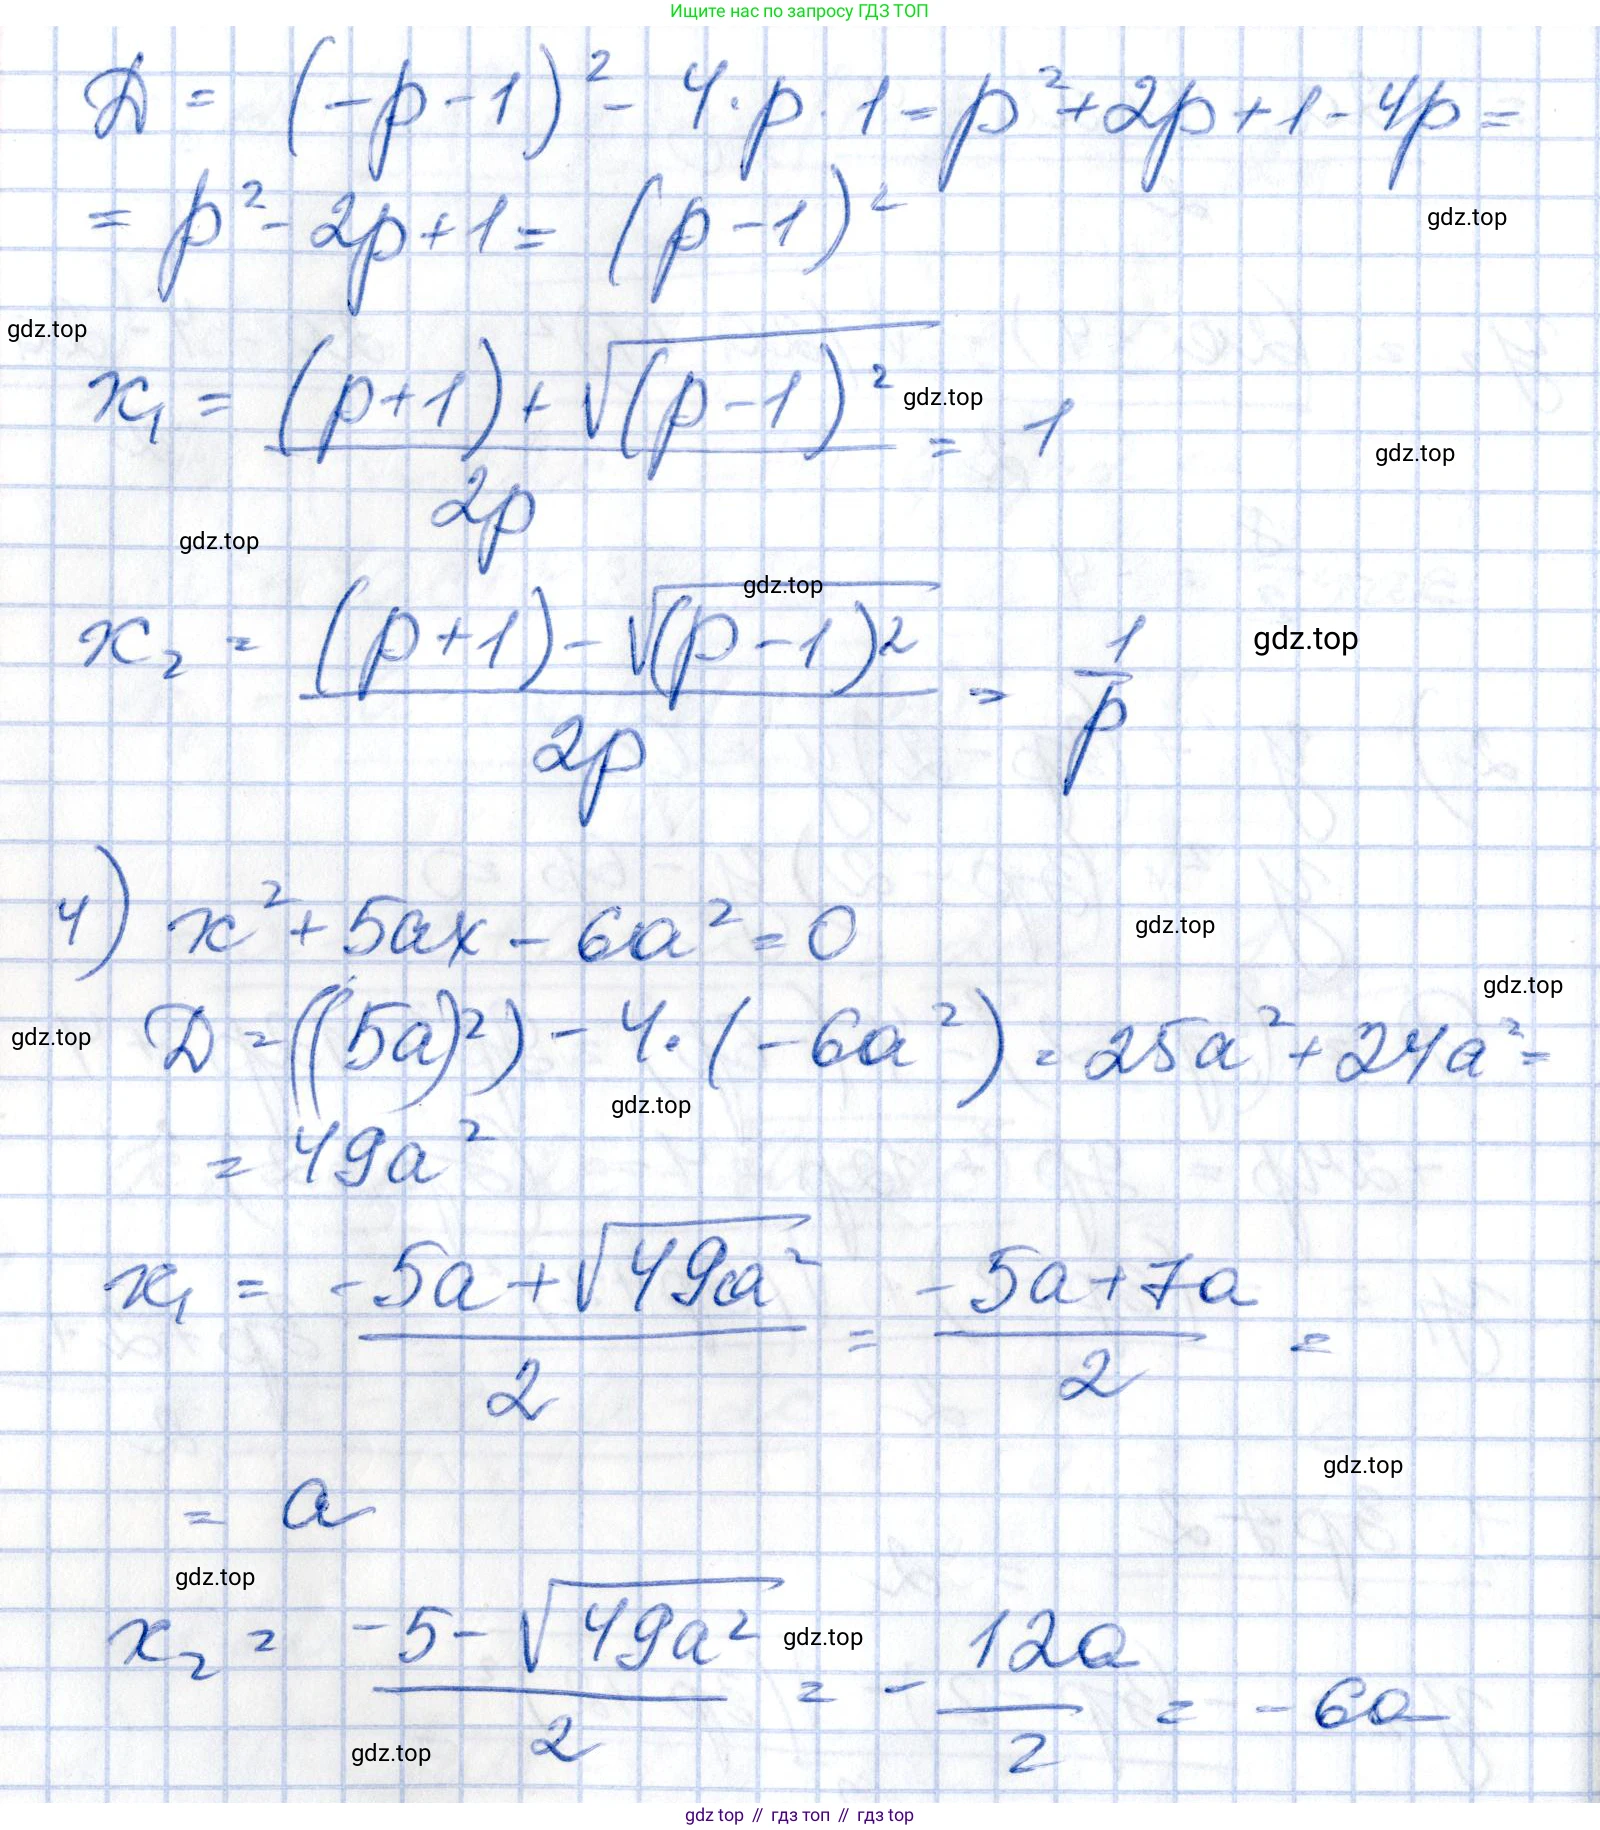 Ищите нас по запросу ГДЗ ТОП
D = (-p-1)² - 4·p·1 = p² + 2p + 1 - 4p =
= p² - 2p + 1 = (p-1)²
gdz.top
gdz.top
x₁ = ((p+1) + √(p-1)²)/2p = 1
gdz.top
gdz.top
gdz.top
gdz.top
x₂ = ((p+1) - √(p-1)²)/2p = 1/p
gdz.top
4) x² + 5ax - 6a² = 0
gdz.top
gdz.top
gdz.top
D = ((5a)²) - 4·(-6a²) = 25a² + 24a² =
gdz.top
= 49a²
x₁ = (-5a + √49a²)/2 = (-5a + 7a)/2 =
gdz.top
= a
gdz.top
x₂ = (-5 - √49a²)/2 = - 12a/2 = -6a
gdz.top
gdz.top
gdz top // гдз топ // гдз top